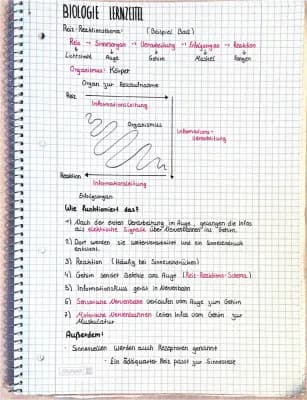 BIOLOGIE LERNZETTEL
Reiz-Reaktionsschema: (Beispiel Ball)
Reiz → Sinnesorgan → Verarbeitung → Erfolgsorgan → Reaktion
Lichtstrahl Auge Gehirn Muskel Fangen
Organismus: Körper
Organ zur Reizaufnahme
Reiz
Informationsleitung
Organismus
Informations-
verarbeitung
Reaktion
Informationsleitung
Erfolgsorgan
Wie funktioniert das?
1) Nach der ersten Verarbeitung im Auge, gelangen die Infos
als elektrische Signale über Nervenbahnen ins Gehirn.
2) Dort werden sie weiterverarbeitet und ein Sinneseindruck
entsteht.
3) Reaktion (Häufig bei Sinneseindrücken)
4) Gehirn sendet Befehle ans Auge (Reiz-Reaktions-Schema)
5) Informationsfluss gerät in Nervenbahn
6) Sensorische Nervenbahn verlaufen vom Auge zum Gehirn
7) Motorische Nervenbahnen leiten Infos vom Gehirn zur
Muskulatur
Außerdem:
- Sinneszellen werden auch Rezeptoren genannt
- Ein adäquater Reiz passt zur Sinneszelle